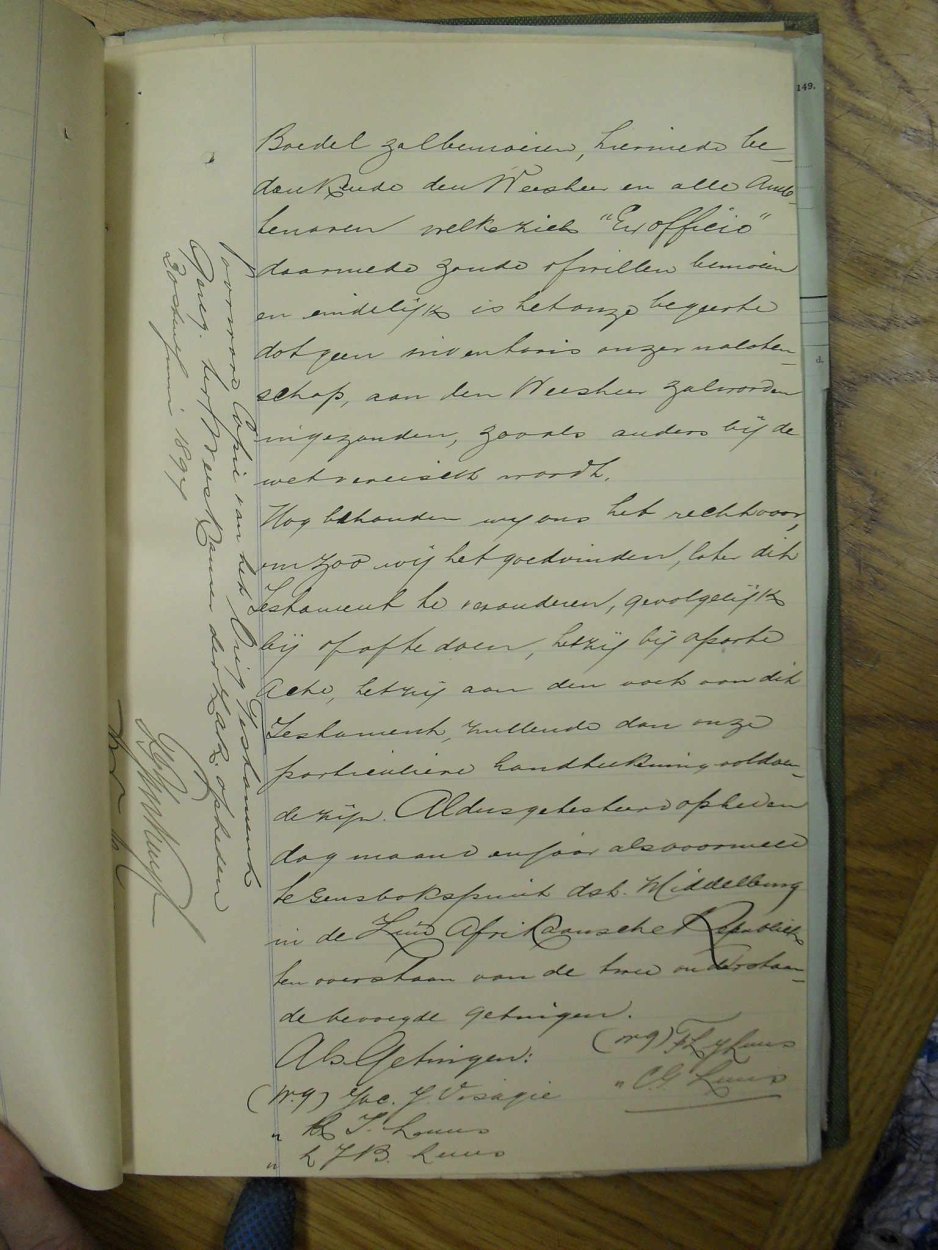 Boedel zal bemoeien, hiermede be-
dankende den Weesheer en alle Amb-
tenaren welke zich "Ex officio"
daarmede zoude of willen bemoeien
en eindelijk is het onze begeerte
dat geen inventaris onzer nalaten-
schap, aan den Weesheer zal worden
ingezonden, zooals anders bij de
wet vereischt wordt.
Nog behouden wij ons het recht voor,
om zoo wij het goedvinden, later dit
Testament te veranderen, gevolgelijk
bij of af te doen, hetzij bij aparte
Acte, hetzij aan den voet van dit
Testament, zullende dan onze
particuliere handteekening voldoen-
de zijn. Aldus getesteerd op heden
dag maand en jaar als voormeld
te Gensbokspunt dst. Middelburg
in de Zuid Afrikaansche Republiek
ten overstaan van de twee onderstaan-
de bevoegde getuigen.
Als Getuigen:
(w.g) Th J Luus
" C.J. Luus
(w.g) Jac. J. Visagie
" T. Luus
" L J B. Luus
voor ware Copie van het Orig. Testament
Gereg. ter Weeskamer der Z.A.R. op heden
20ste Juni 1894
149.
d.